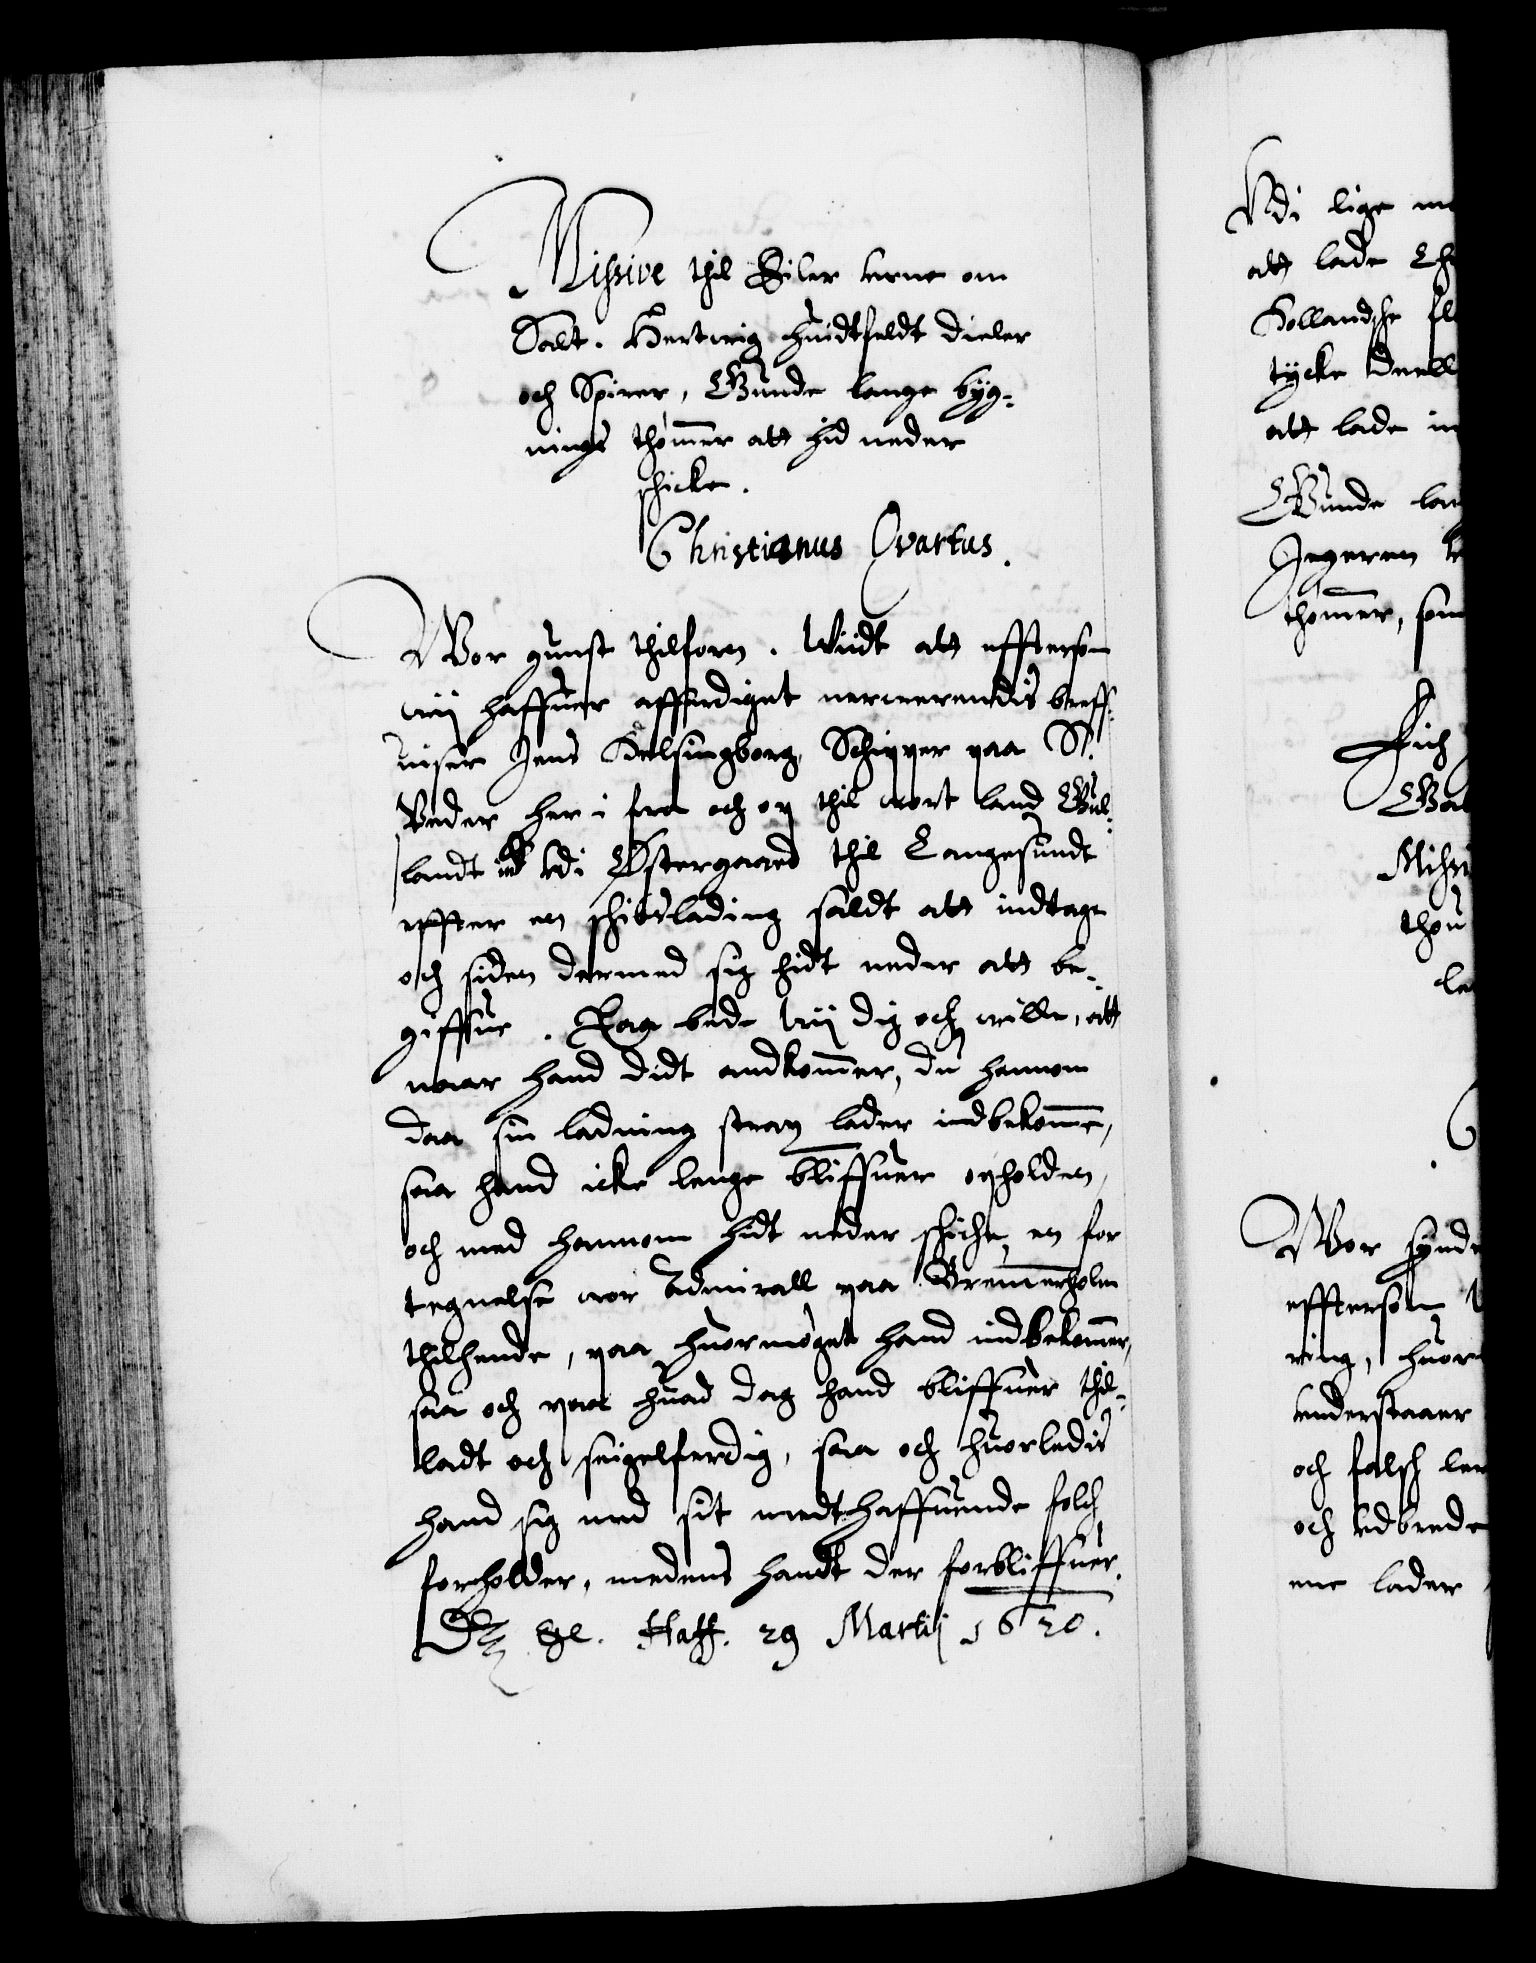 Missive thil Eiler Urne om
Salt. Hertwig huidtfeldt dieler
och Spirer, Gunde lange byg-
nings thømmer att hid neder
schicke.
Christianus Qvartus.
Wor gunst thilforn. Wiidt att effterson
wij haffuer afferdiget nerwerendis breff-
uiser Jens Helsingborg, Schipper paa St.
Peder her i fra och op thil wort land
landt ind Udi Østergaard thil Langesundt
effter en schibslading saldt att indtage
och siden dermed sig hidt neder att be-
giffue. Bede wij dig och wille, att
naar hand didt andkommer, du hannom
daa sin ladning strax lader indbekomme,
saa hand icke lenge bliffuer opholden,
och med hannom hidt neder schicke en for
tegnelse wor Admirall paa Bremmerholm
thilhende, paa huormøget hand indbekommer,
saa och paa huad dag hand bliffuer thil-
ladt och seigelferdig, saa och huorledis
hand sig med sit medthaffuende folch
forholder, medens handt der forbliffuer.
Haff. 29 Martij 1620.
Udi lige
att lade
Hollandsche
tycke
att lade
Gunde
Jegeren
thømmer, som
Wor synder
effterson
ring, huor
understaaer
och falsch
och udbrede
lader